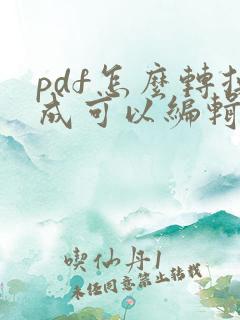 pdf怎麼轉換
成可以編輯
喫仙丹1
未經同意禁止轉載